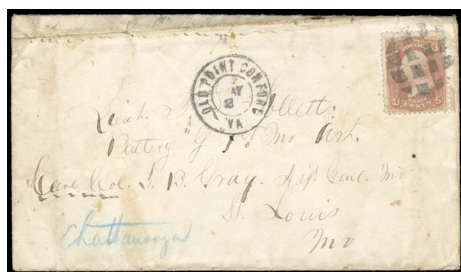 OLD POINT COMFORT
MAY
2
VA
U S
Lieut. Collett
Battery "G" Mo Art.
Care Col. J. B. Gray. Adjt Genl. Mo
St. Louis
Mo
Chattanooga